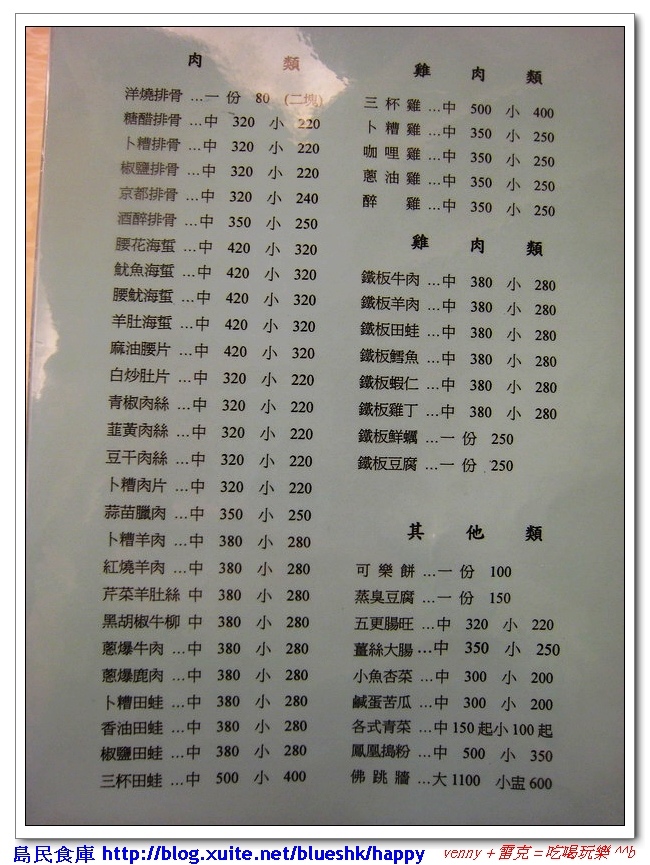 肉 類
洋燒排骨 …一 份 80 (二塊)
糖醋排骨 …中 320 小 220
卜糟排骨 …中 320 小 220
椒鹽排骨 …中 320 小 220
京都排骨 …中 320 小 240
酒醉排骨 …中 350 小 250
腰花海蜇 …中 420 小 320
魷魚海蜇 …中 420 小 320
腰魷海蜇 …中 420 小 320
羊肚海蜇 …中 420 小 320
麻油腰片 …中 420 小 320
白炒肚片 …中 320 小 220
青椒肉絲 …中 320 小 220
韮黃肉絲 …中 320 小 220
豆干肉絲 …中 320 小 220
卜糟肉片 …中 320 小 220
蒜苗臘肉 …中 350 小 250
卜糟羊肉 …中 380 小 280
紅燒羊肉 …中 380 小 280
芹菜羊肚絲 中 380 小 280
黑胡椒牛柳 中 380 小 280
蔥爆牛肉 …中 380 小 280
蔥爆鹿肉 …中 380 小 280
卜糟田蛙 …中 380 小 280
香油田蛙 …中 380 小 280
椒鹽田蛙 …中 380 小 280
三杯田蛙 …中 500 小 400
雞 肉 類
三 杯 雞 …中 500 小 400
卜 糟 雞 …中 350 小 250
咖 哩 雞 …中 350 小 250
蔥 油 雞 …中 350 小 250
醉 雞 …中 350 小 250
雞 肉 類
鐵板牛肉 …中 380 小 280
鐵板羊肉 …中 380 小 280
鐵板田蛙 …中 380 小 280
鐵板鱈魚 …中 380 小 280
鐵板蝦仁 …中 380 小 280
鐵板雞丁 …中 380 小 280
鐵板鮮蠣 …一 份 250
鐵板豆腐 …一 份 250
其 他 類
可 樂 餅 …一 份 100
蒸臭豆腐 …一 份 150
五更腸旺 …中 320 小 220
薑絲大腸 …中 350 小 250
小魚杏菜 …中 300 小 200
鹹蛋苦瓜 …中 300 小 200
各式青菜 …中 150 起小 100 起
鳳凰搗粉 …中 500 小 350
佛 跳 牆 …大 1100 小盅 600
島民食庫 http://blog.xuite.net/blueshk/happy
venny + 雷克 = 吃喝玩樂 ^^b